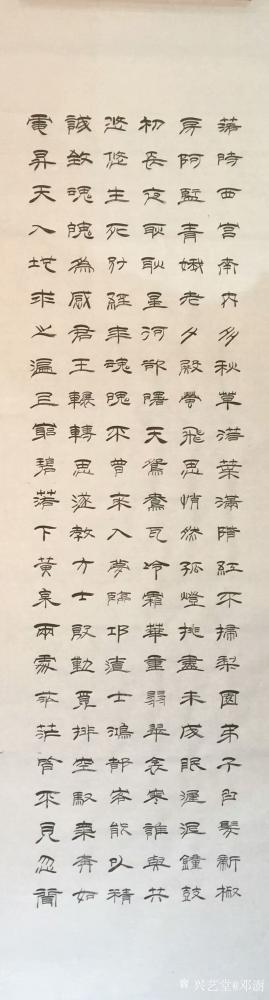 落時西宮南內多秋草落葉滿階紅不掃梨園弟子白髮新椒
房阿監青娥老夕殿螢飛思悄然孤燈挑盡未成眠遲遲鐘鼓
初長夜耿耿星河欲曙天鴛鴦瓦冷霜華重翡翠衾寒誰與共
悠悠生死別經年魂魄不曾來入夢臨邛道士鴻都客能以精
誠致魂魄為感君王輾轉思遂教方士殷勤覓排空馭氣奔如
電昇天入地求之遍上窮碧落下黃泉兩處茫茫皆不見忽聞
兴艺堂@邓澍